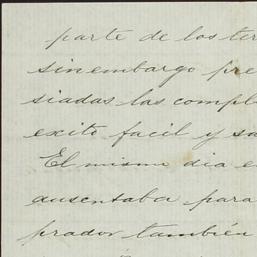 parte de los ter
sinembargo pre
siadas las compl
exito facil y sa
El mismo dia e
ausentaba para
prador también